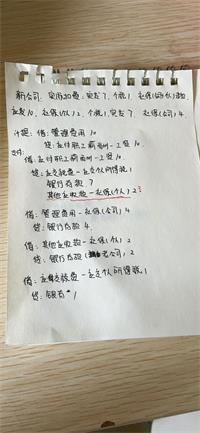 新公司，实际加费：实发7，个税1，社保(个人)2
应发10，社保(个人)2，个税1，实发7，社保(公司)4
计提：借：管理费用 10
贷：应付职工薪酬－工资 10
借：应付职工薪酬－工资 10
贷：应交税费－应交个人所得税 1
银行存款 7
其他应收款－社保(个人) 2
借：管理费用－社保(公司) 4
贷：银行存款 4
借：其他应收款－社保(个人) 2
贷：银行存款 公司) 2
借：应交税费－应交个人所得税 1
贷：银行 1